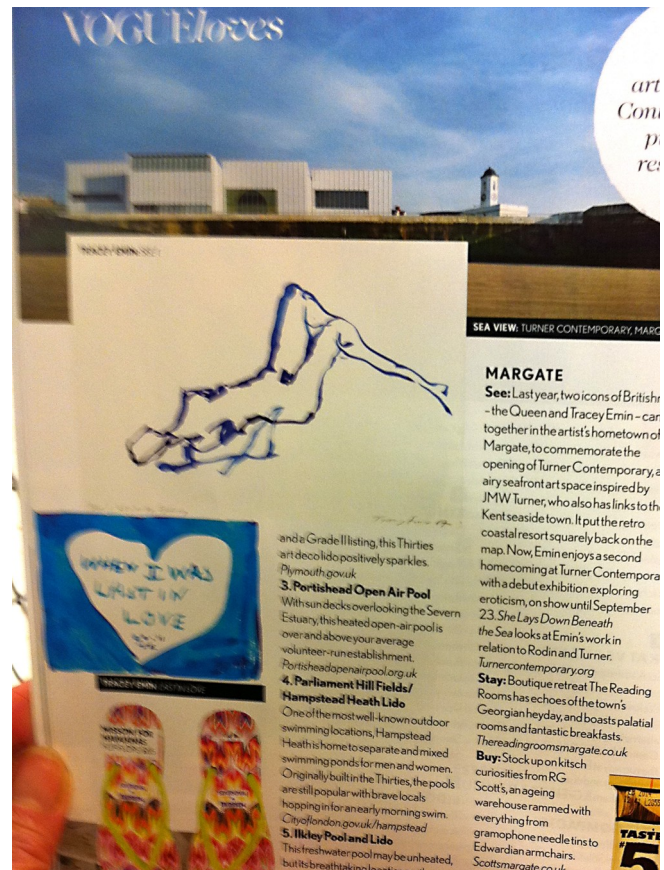 VOGUEloves
art
Con
p
res
TRACEY EMIN
SEA VIEW: TURNER CONTEMPORARY, MARG
WHEN I WAS
LAST IN
LOVE
TRACEY EMIN LAST IN LOVE
MISSONI FOR
HAVAIANAS
and a Grade II listing, this Thirties
art deco lido positively sparkles.
Plymouth.gov.uk
3. Portishead Open Air Pool
With sun decks overlooking the Severn
Estuary, this heated open-air pool is
over and above your average
volunteer-run establishment.
Portisheadopenairpool.org.uk
4. Parliament Hill Fields/
Hampstead Heath Lido
One of the most well-known outdoor
swimming locations, Hampstead
Heath is home to separate and mixed
swimming ponds for men and women.
Originally built in the Thirties, the pools
are still popular with brave locals
hopping in for an early morning swim.
Cityoflondon.gov.uk/hampstead
5. Ilkley Pool and Lido
This freshwater pool may be unheated,
but its breathtaking
MARGATE
See: Last year, two icons of Britishn
– the Queen and Tracey Emin – cam
together in the artist's hometown of
Margate, to commemorate the
opening of Turner Contemporary, a
airy seafront art space inspired by
JMW Turner, who also has links to the
Kent seaside town. It put the retro
coastal resort squarely back on the
map. Now, Emin enjoys a second
homecoming at Turner Contempora
with a debut exhibition exploring
eroticism, on show until September
23. She Lays Down Beneath
the Sea looks at Emin's work in
relation to Rodin and Turner.
Turnercontemporary.org
Stay: Boutique retreat The Reading
Rooms has echoes of the town's
Georgian heyday, and boasts palatial
rooms and fantastic breakfasts.
Thereadingroomsmargate.co.uk
Buy: Stock up on kitsch
curiosities from RG
Scott's, an ageing
warehouse rammed with
everything from
gramophone needle tins to
Edwardian armchairs.
Scottsmargate.co.uk
TASTE
#5